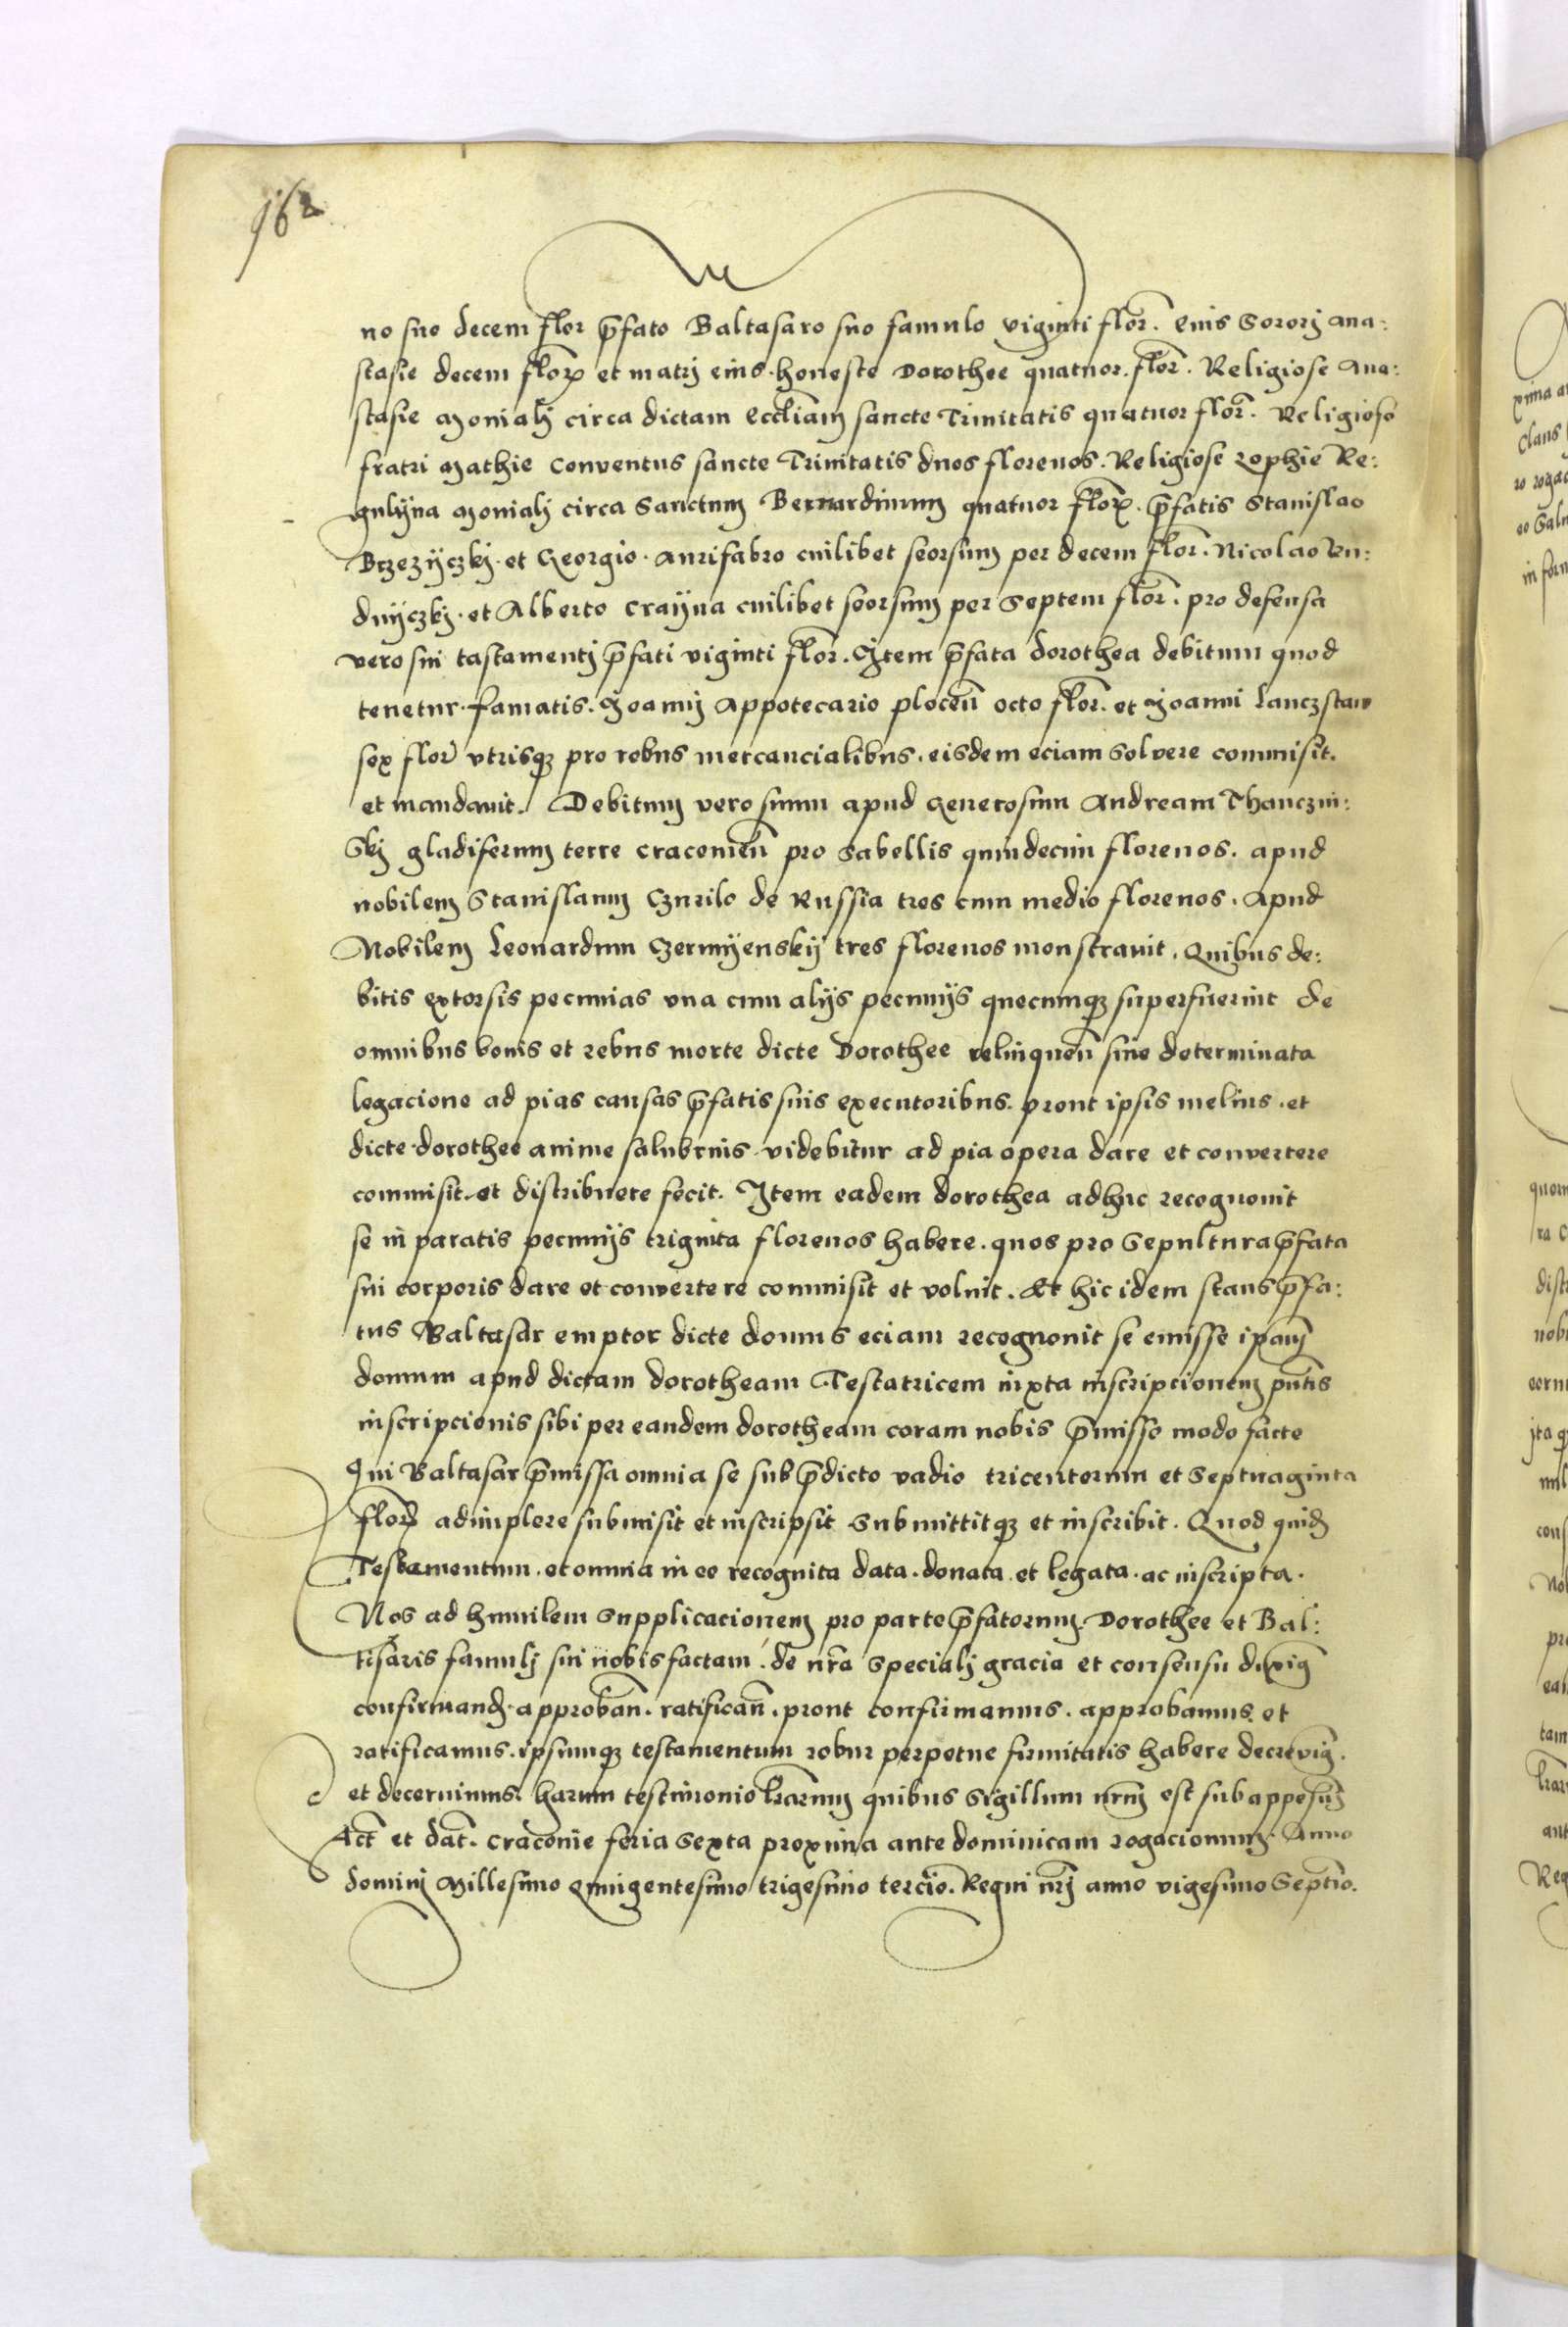 162
no suo decem flor p̄fato Baltasaro suo famulo viginti flor̄. Eius Sororj Ana:
stasie decem flor̄ et matrj eius honeste Dorothee quatuor flor̄. Religiose Ana:
stasie Monialj circa dictam eccl̄iam sancte Trinitatis quatuor flor̄. Religioso
fratri Mathie Conventus sancte Trinitatis duos florenos. Religiose Zophie Re:
gulyna Monialj circa Sanctum Bernardinum quatuor flor̄. p̄fatis Stanislao
Brzezyczkj et Georgio Aurifabro cuilibet seorsum per decem flor̄. Nicolao Ru:
dnyczkj et Alberto Crayna cuilibet seorsum per Septem flor̄. pro defensa
vero sui tastamentj p̄fati viginti flor̄. Item p̄fata dorothea debitum quod
tenetur famatis Joannj Appotecario plocen̄ octo flor̄. et Joanni Lanczstaw
sex flor̄ vtrisq₃ pro rebus mercancialibus eisdem eciam Solvere commisit.
et mandauit. Debitum vero suum apud Generosum Andream Thanczin:
Skj gladiferum terre Cracouien̄ pro Sabellis quindecim florenos. apud
nobilem Stanislaum Czurilo de Russia tres cum medio florenos. Apud
Nobilem Leonardum Czermyenskij tres florenos monstrauit. Quibus de:
bitis extorsis pecunias vna cum alijs pecunijs quecumq₃ superfuerint de
omnibus bonis et rebus morte dicte Dorothee relinquen̄ sine determinata
legacione ad pias causas p̄fatis suis executoribus. prout ipsis melius et
dicte dorothee anime salubrius videbitur ad pia opera dare et convertere
commisit et distribuere fecit. Item eadem dorothea adhuc recognouit
se in paratis pecunijs triginta florenos habere. quos pro Sepultura p̄fata
sui corporis dare et convertere commisit et voluit. Et hic idem stans p̄fa:
tus Baltasar emptor dicte domus eciam recognouit se emisse ip̄am
domum apud dictam dorotheam Testatricem iuxta inscripcionem pn̄tis
inscripcionis sibi per eandem dorotheam coram nobis p̄misso modo facte
Qui Baltasar p̄missa omnia se sub p̄dicto vadio tricentorum et Septuaginta
flor̄ adimplere submisit et inscripsit Submittitq₃ et inscribit. Quod quid̄
Testamentum et omnia in eo recognita data donata et legata ac inscripta.
Nos ad humilem Supplicacionem pro parte p̄fatorum Dorothee et Bal:
tisaris famulj sui nobis factam de nr̄a Specialj gracia et consensu duxim̄
confirmand̄ approban̄. ratifican̄. prout confirmamus. approbamus et
ratificamus. ipsumq₃ testamentum robur perpetue firmitatis habere decreuim̄.
et decernimus. harum testimonio lr̄arum quibus Sigillum nr̄m est subappesum̄
Act̄ et dat̄. Cracouie feria Sexta proxima ante dominicam rogacionum Anno
dominj Millesimo Quingentesimo trigesimo tercio. Regni nr̄j anno vigesimo Septīo.